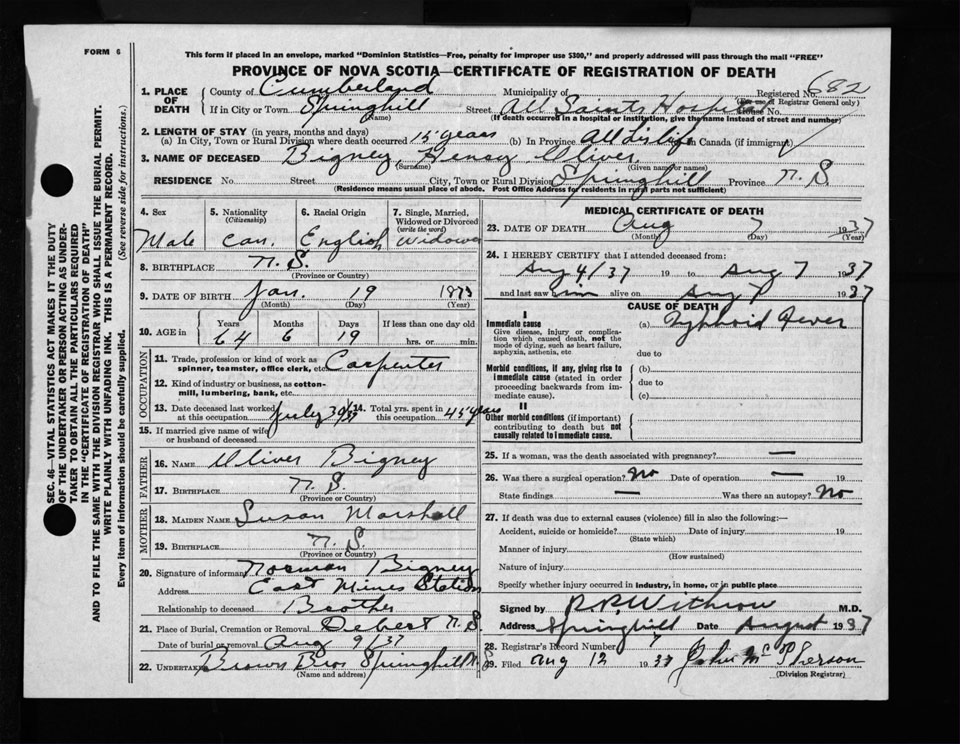 FORM 6
This form if placed in an envelope, marked "Dominion Statistics—Free, penalty for improper use $300," and properly addressed will pass through the mail "FREE"
PROVINCE OF NOVA SCOTIA—CERTIFICATE OF REGISTRATION OF DEATH
SEC. 46—VITAL STATISTICS ACT MAKES IT THE DUTY
OF THE UNDERTAKER OR PERSON ACTING AS UNDER-
TAKER TO OBTAIN ALL THE PARTICULARS REQUIRED
IN THE "CERTIFICATE OF REGISTRATION OF DEATH"
AND TO FILE THE SAME WITH THE DIVISION REGISTRAR WHO SHALL ISSUE THE BURIAL PERMIT.
WRITE PLAINLY WITH UNFADING INK. THIS IS A PERMANENT RECORD.
Every item of information should be carefully supplied. (See reverse side for instructions.)
1. PLACE OF DEATH County of Cumberland Municipality of Registered No. 682
(For use of Registrar General only)
If in City or Town Springhill Street All Saints Hospital House No.
(Name) (If death occurred in a hospital or institution, give the name instead of street and number)
2. LENGTH OF STAY (in years, months and days)
(a) In City, Town or Rural Division where death occurred 15 years (b) In Province All his life in Canada (if immigrant)
3. NAME OF DECEASED Bigney, Henry Oliver.
(Surname) (Given name or names)
RESIDENCE No. Street City, Town or Rural Division Springhill Province N. S.
(Residence means usual place of abode. Post Office Address for residents in rural parts not sufficient)
4. Sex Male
5. Nationality (Citizenship) Can.
6. Racial Origin English
7. Single, Married, Widowed or Divorced (write the word) Widower
8. BIRTHPLACE N. S.
(Province or Country)
9. DATE OF BIRTH Jan. 19 1873
(Month) (Day) (Year)
10. AGE in Years Months Days If less than one day old
64 6 19 hrs. or min.
OCCUPATION
11. Trade, profession or kind of work as spinner, teamster, office clerk, etc. Carpenter
12. Kind of industry or business, as cotton-mill, lumbering, bank, etc.
13. Date deceased last worked at this occupation July 30/37 14. Total yrs. spent in this occupation 45 years
15. If married give name of wife or husband of deceased
FATHER
16. NAME Oliver Bigney
17. BIRTHPLACE N. S.
(Province or Country)
MOTHER
18. MAIDEN NAME Susan Marshall
19. BIRTHPLACE N. S.
(Province or Country)
20. Signature of informant Norman Bigney
Address East Mines Station
Relationship to deceased Brother
21. Place of Burial, Cremation or Removal Debert N. S.
Date of burial or removal Aug 9/37
22. UNDERTAKER Brown Bros Springhill N. S.
(Name and address)
MEDICAL CERTIFICATE OF DEATH
23. DATE OF DEATH Aug 7 1937
(Month) (Day) (Year)
24. I HEREBY CERTIFY that I attended deceased from:
Aug 4/37 19 to Aug 7 1937
and last saw him alive on Aug 7 1937
CAUSE OF DEATH
I
Immediate cause (a) Typhoid Fever
Give disease, injury or complication which caused death, not the mode of dying, such as heart failure, asphyxia, asthenia, etc
due to
Morbid conditions, if any, giving rise to immediate cause (stated in order proceeding backwards from immediate cause).
(b)
due to
(c)
II
Other morbid conditions (if important) contributing to death but not causally related to immediate cause.
25. If a woman, was the death associated with pregnancy? —
26. Was there a surgical operation? No Date of operation — 19
State findings — Was there an autopsy? No
27. If death was due to external causes (violence) fill in also the following:—
Accident, suicide or homicide? Date of injury 19
(State which)
Manner of injury
(How sustained)
Nature of injury
Specify whether injury occurred in industry, in home, or in public place
Signed by R. R. Withrow M.D.
Address Springhill Date August 1937
28. Registrar's Record Number 7
29. Filed Aug 12 1937 John McPherson
(Division Registrar)